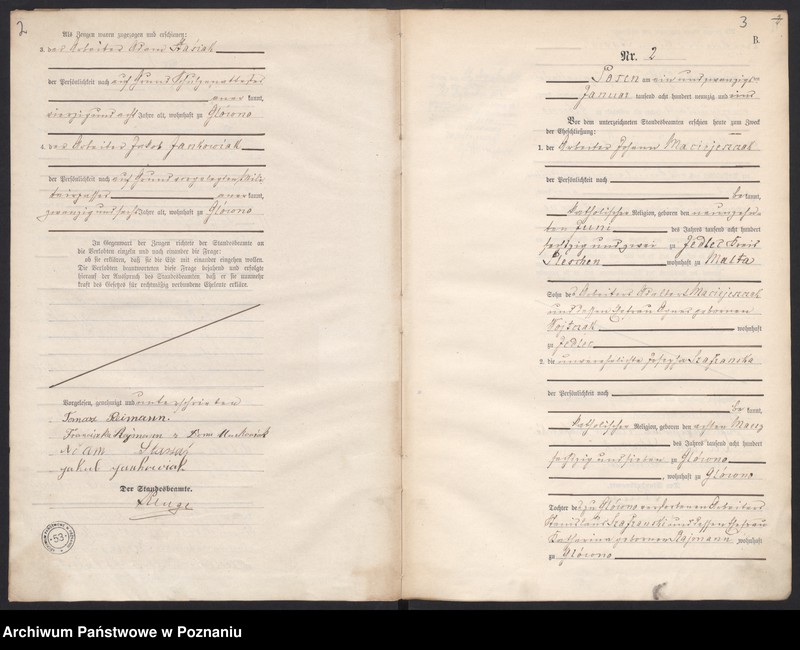 2
Als Zeugen waren zugezogen und erschienen:
3. des Arbeiter Adam
der Persönlichkeit nach auf Grund
kannt,
vierzig und acht Jahre alt, wohnhaft zu Glówno
4. des Arbeiter Jakob Jankowiak
der Persönlichkeit nach auf Grund vorgelegten
kannt,
zwanzig und sechs Jahre alt, wohnhaft zu Glówno
In Gegenwart der Zeugen richtete der Standesbeamte an
die Verlobten einzeln und nach einander die Frage:
ob sie erklären, daß sie die Ehe mit einander eingehen wollen.
Die Verlobten beantworteten diese Frage bejahend und erfolgte
hierauf der Ausspruch des Standesbeamten, daß er sie nunmehr
kraft des Gesetzes für rechtmäßig verbundene Eheleute erkläre.
Vorgelesen, genehmigt und unterschrieben
Tomax Reimann.
Franziska
Adam
Jakub Jankowiak
Der Standesbeamte.
53
3
B.
Nr. 2
Posen am ein und zwanzig
Januar tausend acht hundert neunzig und eins
Vor dem unterzeichneten Standesbeamten erschienen heute zum Zweck
der Eheschließung:
1. der Arbeiter Johann Maciejczak
der Persönlichkeit nach
be kannt,
katholischer Religion, geboren den neunzehn
ten Juni des Jahres tausend acht hundert
sechszig und zwei zu Jedlec Kreis
Pleschen, wohnhaft zu Malta
Sohn des Arbeiters Maciejczak
und dessen Ehefrau Agnes geborenen
Wojtczak wohnhaft
zu Jedlec
2. die unverehelichte Josepha Szafranska
der Persönlichkeit nach
be kannt,
katholischer Religion, geboren den ersten März
des Jahres tausend acht hundert
sechszig und sieben zu Glówno
, wohnhaft zu Glówno
Tochter des zu Glówno verstorbenen Arbeiters
Stanislaus Szafranski und dessen Ehefrau
Katharina geborenen wohnhaft
zu Glówno
Archiwum Państwowe w Poznaniu